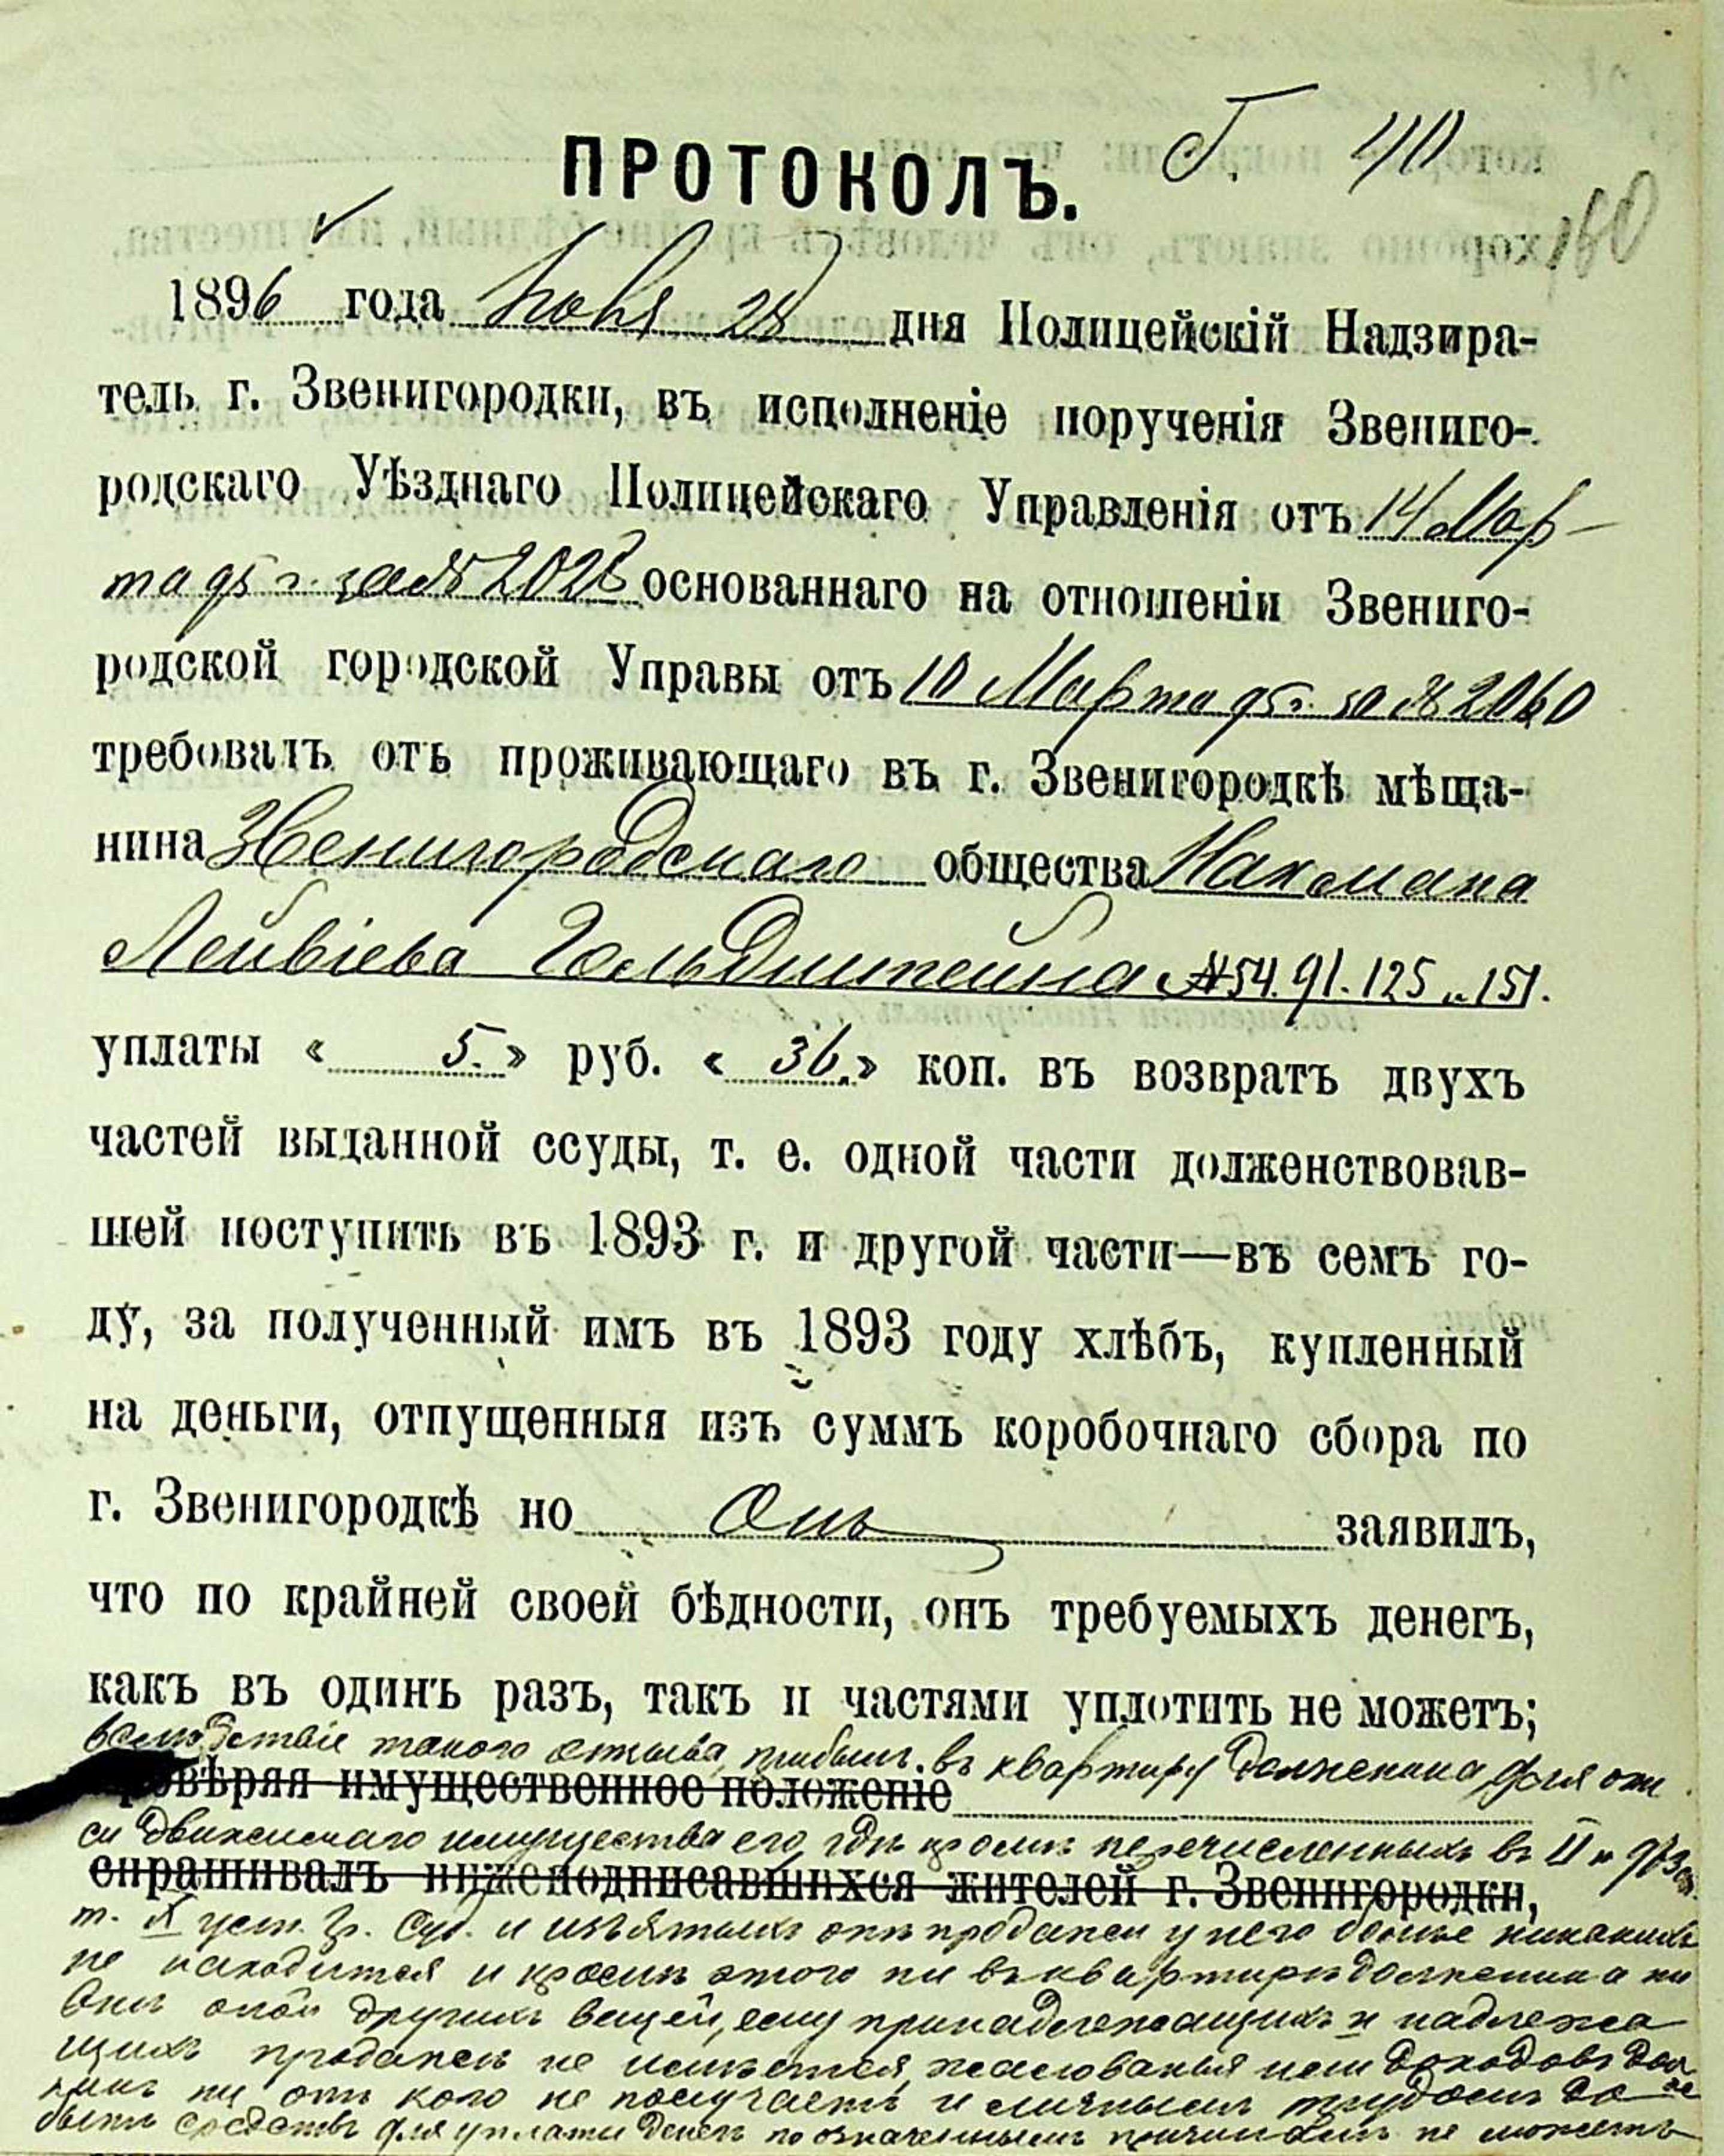 ПРОТОКОЛЪ. Г. 40
160
1896 года Іюня 28 дня Полицейскій Надзира-
тель г. Звенигородки, въ исполненіе порученія Звениго-
родскаго Уѣзднаго Полицейскаго Управленія отъ 14 Мар-
та 95 г. за № 2028 основаннаго на отношеніи Звениго-
родской городской Управы отъ 10 Марта 95 г. за № 2060
требовалъ отъ проживающаго въ г. Звенигородкѣ мѣща-
нина Звенигородскаго общества Нахмана
Лейбіева Гольдштейна №54.91.125 и 151.
уплаты « 5. » руб. « 36. » коп. въ возвратъ двухъ
частей выданной ссуды, т. е. одной части долженствовав-
шей поступить въ 1893 г. и другой части—въ семъ го-
ду, за полученный имъ въ 1893 году хлѣбъ, купленный
на деньги, отпущенныя изъ суммъ коробочнаго сбора по
г. Звенигородкѣ но Онъ заявилъ,
что по крайней своей бѣдности, онъ требуемыхъ денегъ,
какъ въ одинъ разъ, такъ и частями уплотить не можетъ;
вслѣдствіе такого отзыва, прибылъ въ квартиру должника для опи
овѣряя имущественное положеніе
си движимаго имущества его, гдѣ кромѣ перечисленныхъ въ II п 973 ст.
спрашивалъ нижеподписавшихся жителей г. Звенигородки,
т. X уст. гр. суд. и изъятыхъ отъ продажи у него более никакихъ
не находится и кромѣ этого ни въ квартирѣ должника ни
внѣ оной другихъ вещей, ему принадлежащихъ и надлежа
щихъ продажѣ не имѣется, жалованья или доходовъ дол
жникъ ни отъ кого не получаетъ и личнымъ трудомъ до
быть средствъ для уплаты денегъ по означеннымъ причинамъ не можетъ